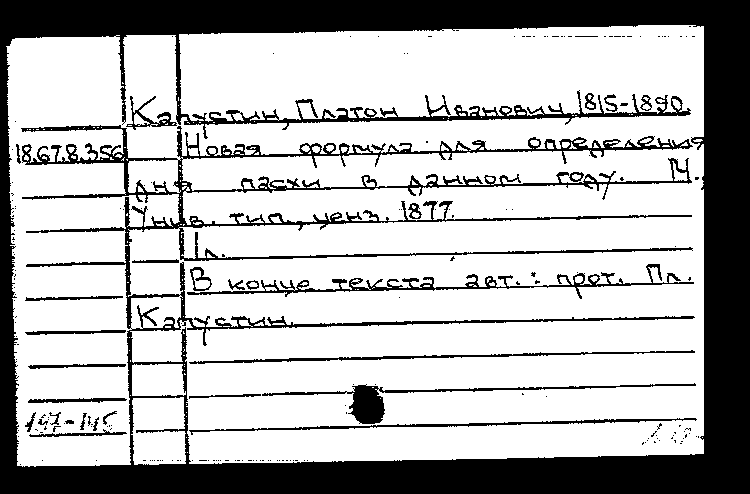 Капустин, Платон Иванович, 1815-1890.
18.67.8.356 Новая формула для определения
дня пасхи в данном году. М.,
Унив. тип., ценз. 1877.
1 л.
В конце текста авт.: прот. Пл.
Капустин.
197-145